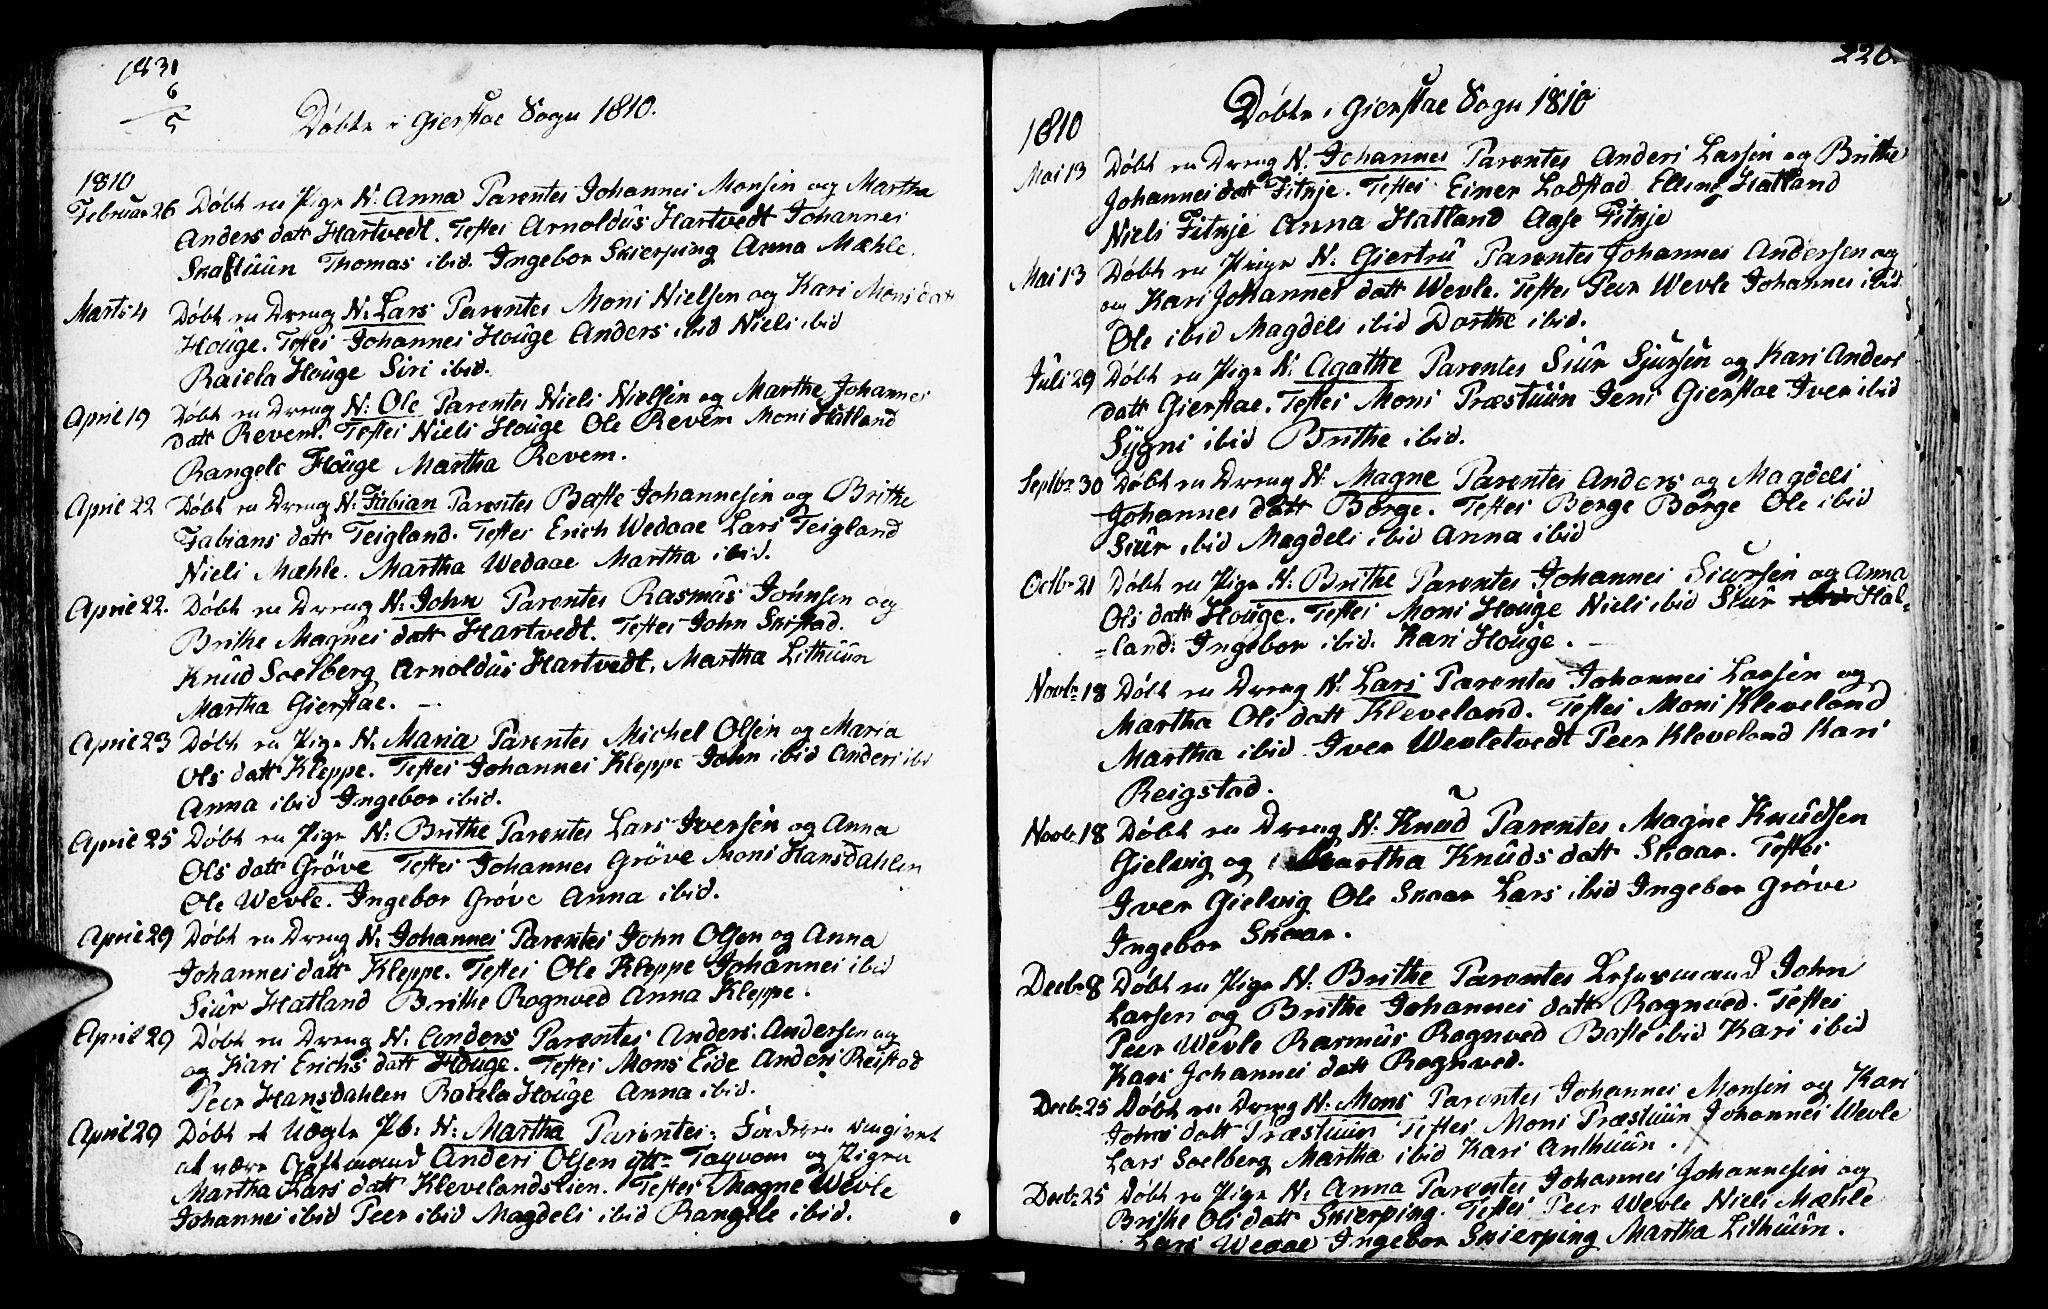 1831
6
5
Døbte i Gierstae Sogn 1810.
1810
Februar 26 Døbt en Pige N: Anna Parentes Johannes Monsen og Martha
Anders datt Hartvedt. Testes Arnoldus Hartvedt Johannes
Skaftuun Thomas ibid. Ingebor Skierping Anna Mæhle.
Marti 4 Døbt en Dreng N: Lars Parentes Mons Nielsen og Kari Mons datt
Houge. Testes Johannes Houge Anders ibid Niels ibid
Raiela Houge Siri ibid.
April 19 Døbt en Dreng N: Ole Parentes Niels Nielsen og Marthe Johannes
datt Revem. Testes Niels Houge Ole Revem Mons Hatland
Rangele Houge Martha Revem.
April 22 Døbt en Dreng N: Fabian Parentes Baste Johannesen og Brithe
Fabians datt Teigland. Testes Erich Wedaae Lars Teigland
Niels Mæhle. Martha Wedaae Martha ibid.
April 22. Døbt en Dreng N: John Parentes Rasmus Jonnsen og
Brithe Magnes datt Hartvedt. Testes John Skistad.
Knud Soelberg Arnoldus Hartvedt, Martha Lithuun
Martha Gierstae. —
April 23 Døbt en Pige N. Maria Parentes Michel Olsen og Maria
Ols datt Kleppe. Testes Johannes Kleppe John ibid Anders ibd
Anna ibid Ingebor ibid.
April 25 Døbt en Pige N: Brithe Parentes Lars Iversen og Anna
Ols datt Grøve Testes Johannes Grøve Mons Hansdahlen
Ole Wevle. Ingebor Grøve Anna ibid.
April 29 Døbt en Dreng N: Johannes Parentes John Olsen og Anna
Johannes datt Kleppe. Testes Ole Kleppe Johannes ibid
Siur Hatland Brithe Rognved Anna Kleppe.
April 29 Døbt en Dreng N. Anders Parentes Anders Andersen og
og Kari Erichs datt Houge. Testes Mons Eide Anders Reistad
Peer Hansdahlen Raiela Houge Anna ibid.
April 29 Døbt et Uægte Pb: N: Martha Parentes: Faderen angivet
at være Gift mand Anders Olsen yttr Tayvom og Pigen
Martha Lars datt Klevelandslien. Testes Magne Wevle
Johannes ibid Peer ibid Magdels ibid Rangele ibid.
226.
Døbte i Gierstae Sogn 1810
1810
Mai 13 Døbt en Dreng N. Johannes Parentes Anders Larsen og Brithe
Johannes datt Fitnje. Testes Einer Lodstad Elling Hatland
Niels Fitnje Anna Hatland Aase Fitnje
Mai 13 Døbt en Pige N. Giertru Parentes Johannes Andersen og
og Kari Johannes datt Wevle. Testes Peer Wevle Johannes ibid
Ole ibid Magdels ibid Dorthe ibid.
Juli 29 Døbt en Pige N. Agathe Parentes Siur Sjursen og Kari Anders
datt Gierstae. Testes Mons Præstuun Jens Gierstae Iver ibid
Sygni ibid Brithe ibid.
Septbr 30 Døbt en Dreng N: Magne Parentes Anders og Magdels
Johannes datt Borge. Testes Børge Borge Ole ibid
Siur ibid Magdels ibid Anna ibid
Octbr 21 Døbt en Pige N: Brithe Parentes Johannes Siursen og Anna
Ols datt Houge. Testes Mons Houge Niels ibid Siur Hal=
=land: Ingebor ibid. Kari Houge. —
Novbr 18 Døbt en Dreng N. Lars Parentes Johannes Larsen og
Martha Ols datt Kleveland. Testes Mons Kleveland
Martha ibid Iver Wevletvedt Peer Kleveland Kari
Reigstad.
Novbr 18 Døbt en Dreng N: Knud Parentes Magne Knudsen
Gielvig og Martha Knuds datt Skaar. Testes
Iver Gielvig Ole Skaar Lars ibid Ingebor Grøve
Ingebor Skaar.
Decbr 8 Døbt en Pige N: Brithe Parentes Lehnsmand John
Larsen og Brithe Johannes datt Rognved. Testes
Peer Wevle Rasmus Rognved Baste ibid Kari ibid
Kari Johannes datt Rognved.
Decbr 25 Døbt en Dreng N: Mons Parentes Johannes Monsen og Kari
Johns datt Præstuun Testes Mons Præstuun Johannes Wevle
Lars Soelberg Martha ibid Kari Anthuun.
Decbr 25 Døbt en Pige N: Anna Parentes Johannes Johannesen og
Brithe Ols datt Skierping. Testes Peer Wevle Niels Mæhle
Lars Wedaae Ingebor Skierping Martha Lithuun.